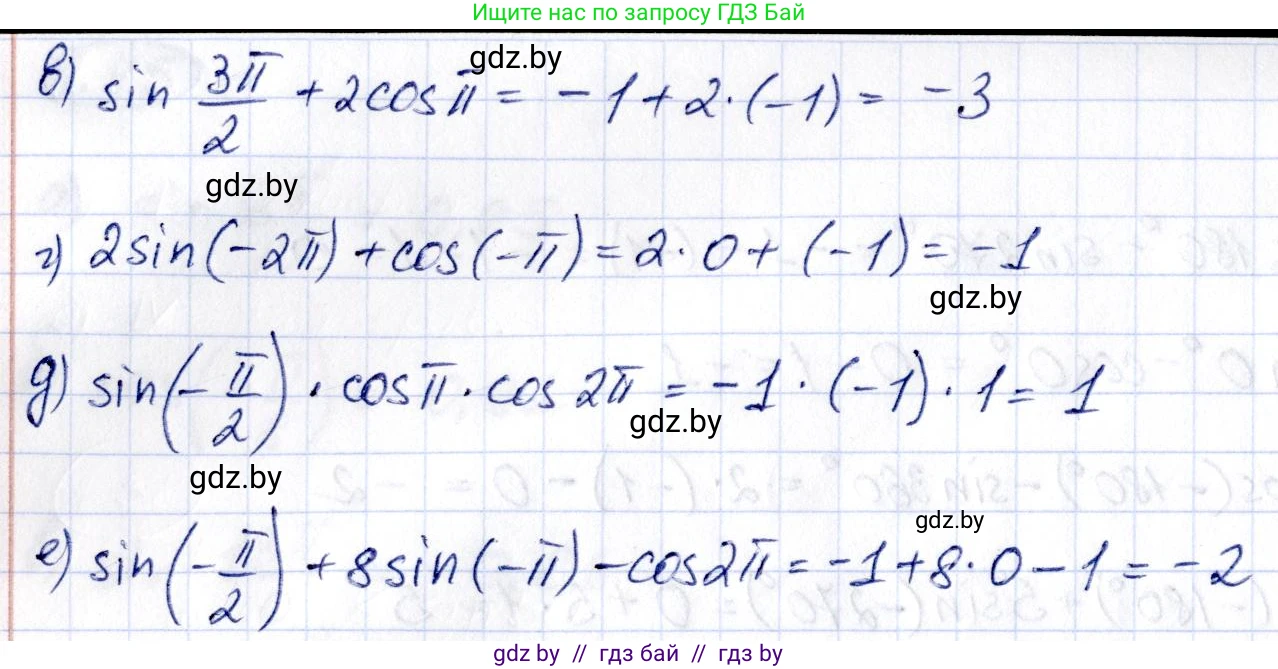 Ищите нас по запросу ГДЗ Бай
в) sin 3π/2 + 2cosπ = -1 + 2·(-1) = -3
gdz.by
gdz.by
г) 2sin(-2π) + cos(-π) = 2·0 + (-1) = -1
gdz.by
д) sin(-π/2) · cosπ · cos 2π = -1 · (-1) · 1 = 1
gdz.by
gdz.by
gdz.by
е) sin(-π/2) + 8sin(-π) - cos2π = -1 + 8·0 - 1 = -2
gdz by // гдз бай // гдз by